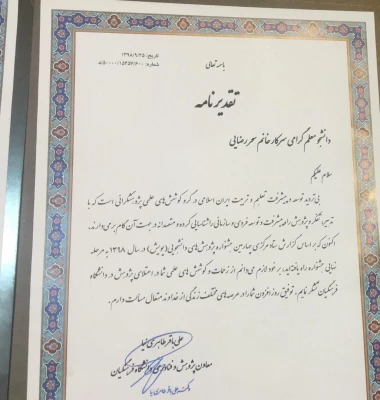 باسمه تعالی
تاریخ: ۱۳۹۸/۹/۲۵
شماره: ۵۰۰۰۰/۱۵۴۵۲/۶۰۰/د
تقدیرنامه
دانشجو معلم گرامی سرکار خانم سحر رضایی
سلام علیکم
بی تردید توسعه و پیشرفت تعلیم و تربیت ایران اسلامی در گرو کوشش های علمی پژوهشگرانی است که با
تدبیر، تفکر و پژوهش راه پیشرفت و توسعه فردی و سازمانی را شناسایی کرده و متعهدانه در جهت آن گام بر می دارند.
اکنون که بر اساس گزارش ستاد مرکزی چهارمین جشنواره پژوهش های دانشجویی (پویش) در سال ۱۳۹۸ به مرحله
نهایی جشنواره راه یافته اید، بر خود لازم می دانم از زحمات و کوشش های علمی شما در اعتلای پژوهش در دانشگاه
فرهنگیان تشکر نمایم. توفیق روزافزون شما را در عرصه های مختلف زندگی از خداوند متعال مسألت دارم.
علی باقر طاهری نیا
معاون پژوهش و فناوری دانشگاه فرهنگیان
دکتر علی باقر طاهری نیا